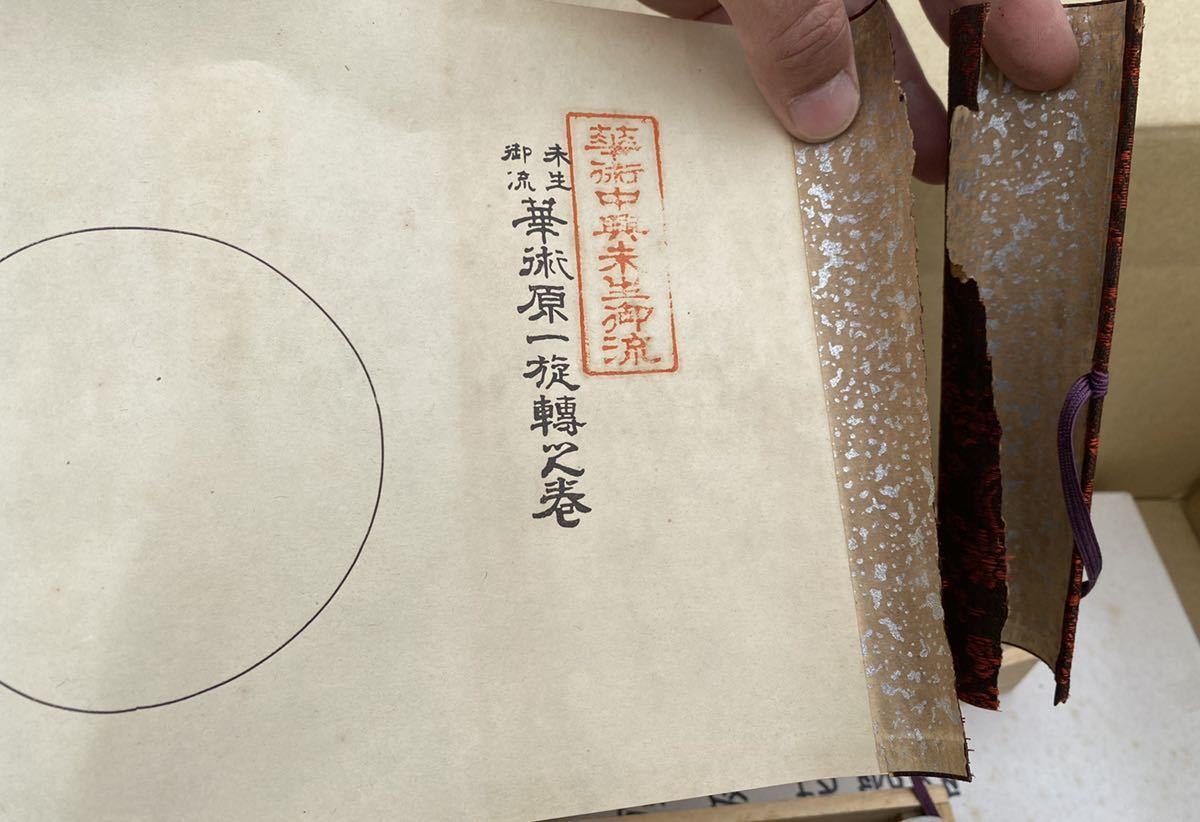 華術中興未生御流
未生
御流
華術原一旋轉之巻